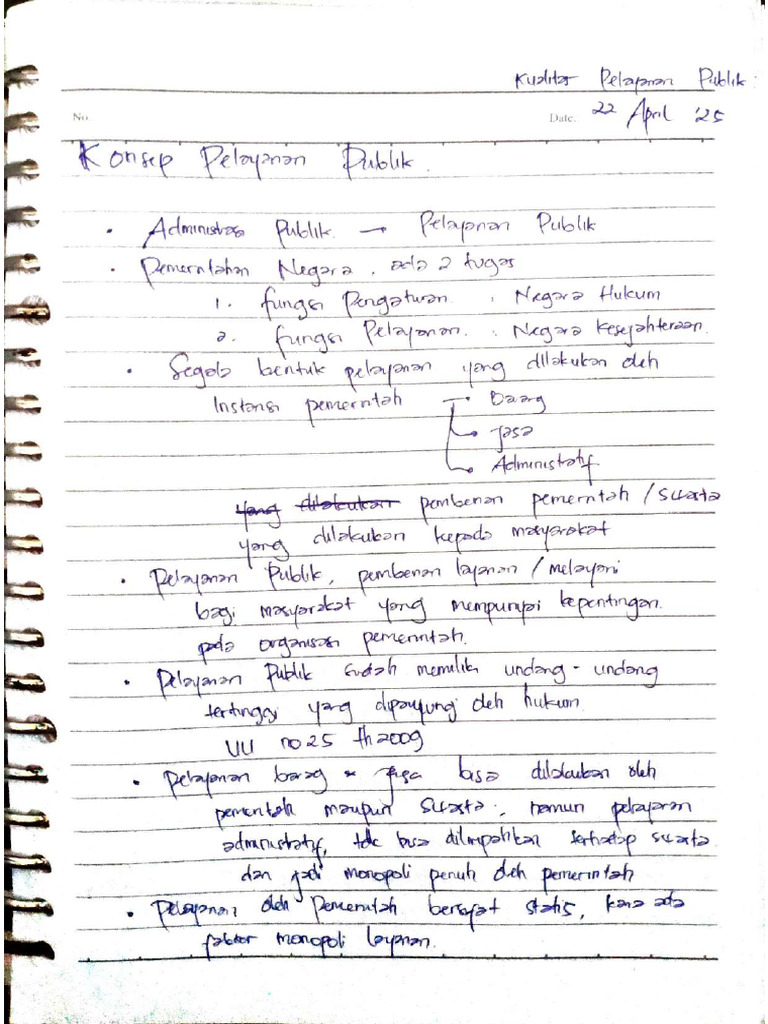 Kualitas Pelayanan Publik.
No. Date. 22 April '25
Konsep Pelayanan Publik.
• Administrasi Publik. → Pelayanan Publik
• Pemerintahan Negara, ada 2 tugas
1. fungsi Pengaturan : Negara Hukum
2. fungsi Pelayanan : Negara Kesejahteraan.
• Segala bentuk pelayanan yang dilakukan oleh
Instansi pemerintah → Barang
→ Jasa
→ Administratif
yang dilakukan pemberian pemerintah / swasta
yang dilakukan kepada masyarakat
• Pelayanan Publik, pemberian layanan / melayani
bagi masyarakat yang mempunyai kepentingan
pada organisasi pemerintah.
• Pelayanan Publik sudah memilik undang - undang
tertinggi yang dipayungi oleh hukum
UU no 25 th 2009
• Pelayanan barag & jasa bisa dilakukan oleh
pemerintah maupun swasta, namun pelayanan
administratif, tdk bisa dilimpahkan terhadap swasta
dan jadi monopoli penuh oleh pemerintah
• Pelayanan oleh Pemerintah bersifat statis, kana ada
faktor monopoli layanan.